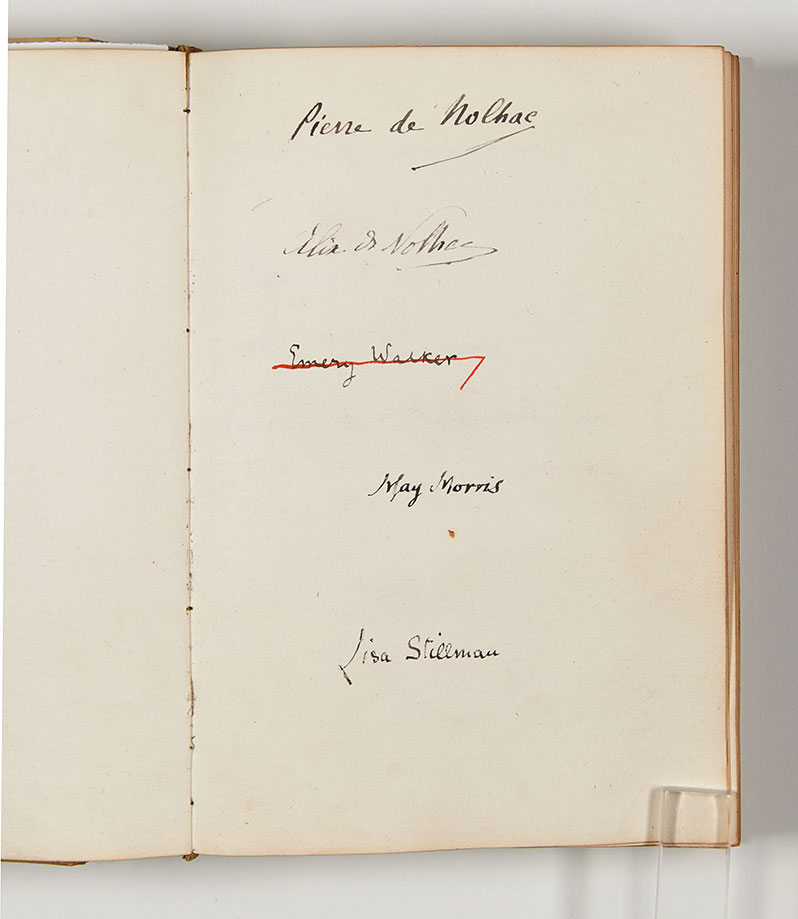 Pierre de Nolhac
Alix de Nolhac
Emery Walker
May Morris
Lisa Stillman